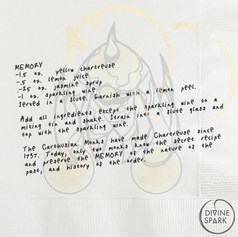 MEMORY
-1.5 oz. yellow chartreuse
-.5 oz. lemon juice
-.25 oz. jasmine syrup
-1 oz. sparkling wine
Served in a flute. Garnish with a lemon peel.
Add all ingredients except the sparkling wine to a
mixing tin and shake. Strain into a flute glass and
top with the sparkling wine.
The Carthusian Monks have made Chartreuse since
1737. Today, only two monks know the secret recipe
and preserve the MEMORY of the nature of the
past, and history of the order.
DIVINE
SPARK